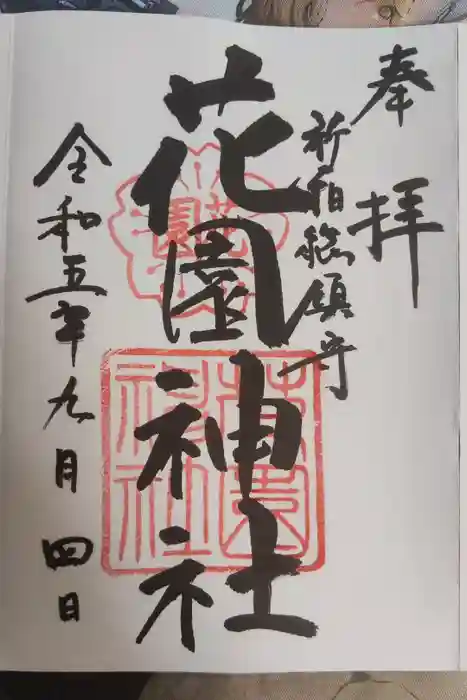 奉拝
新宿総鎮守
花園神社
花園
花園神社
令和五年九月四日